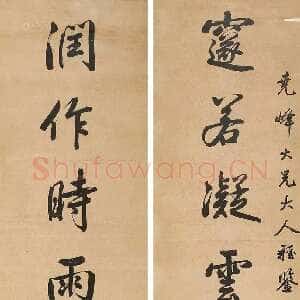 堯峰大兄大人雅鑒
邃若凝雲
潤作時雨
Shufawang.CN